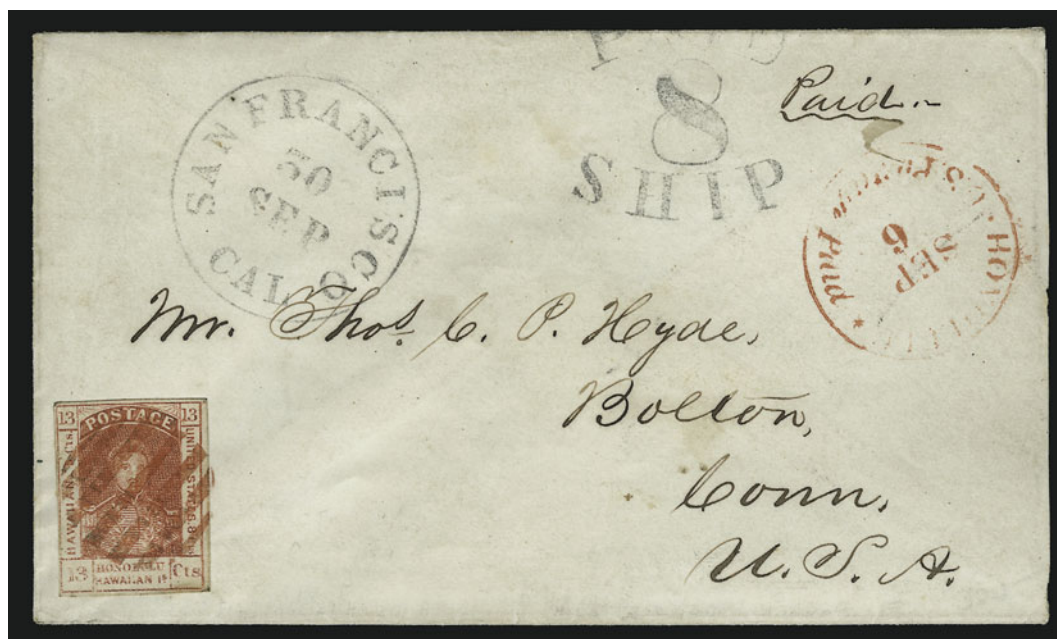 SAN FRANCISCO
30
SEP
CAL.
PAID
8
SHIP
Paid
U.S. Postage Paid
HONOLULU
SEP
6
Mr. Thos. C. P. Hyde,
Bolton,
Conn,
U. S. A.
13 POSTAGE 13
HAWAIIAN 5 Cts.
UNITED STATES 8 Cts
13 HONOLULU Cts
HAWAIIAN Is